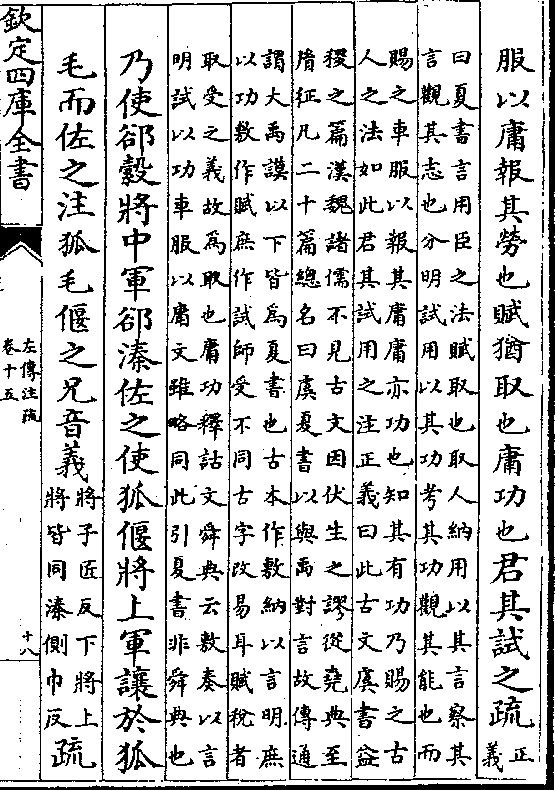 服以庸報其勞也賦猶取也庸功也君其試之疏正義
曰夏書言用臣之法賦取也取人納用以其言察其
言觀其志也分明試用以其功考其功觀其能也而
賜之車服以報其庸庸亦功也知其有功乃賜之古
人之法如此君其試用之注正義曰此古文虞書益
稷之篇漢魏諸儒不見古文因伏生之謬從堯典至
㣧征凡二十篇總名曰虞夏書以與禹對言故傳通
謂大禹謨以下皆爲夏書也古本作敷納以言明庶
以功敷作賦庶作試師受不同古字改易耳賦稅者
取受之義故爲取也庸功釋詁文舜典云敷奏以言
明試以功車服以庸文雖略同此引夏書非舜典也
乃使郤縠將中軍郤溱佐之使狐偃將上軍讓於狐
毛而佐之注狐毛偃之兄音義將子匠反下將上將皆同溱側巾反疏
欽定四庫全書
左傳注疏
卷十五
十八